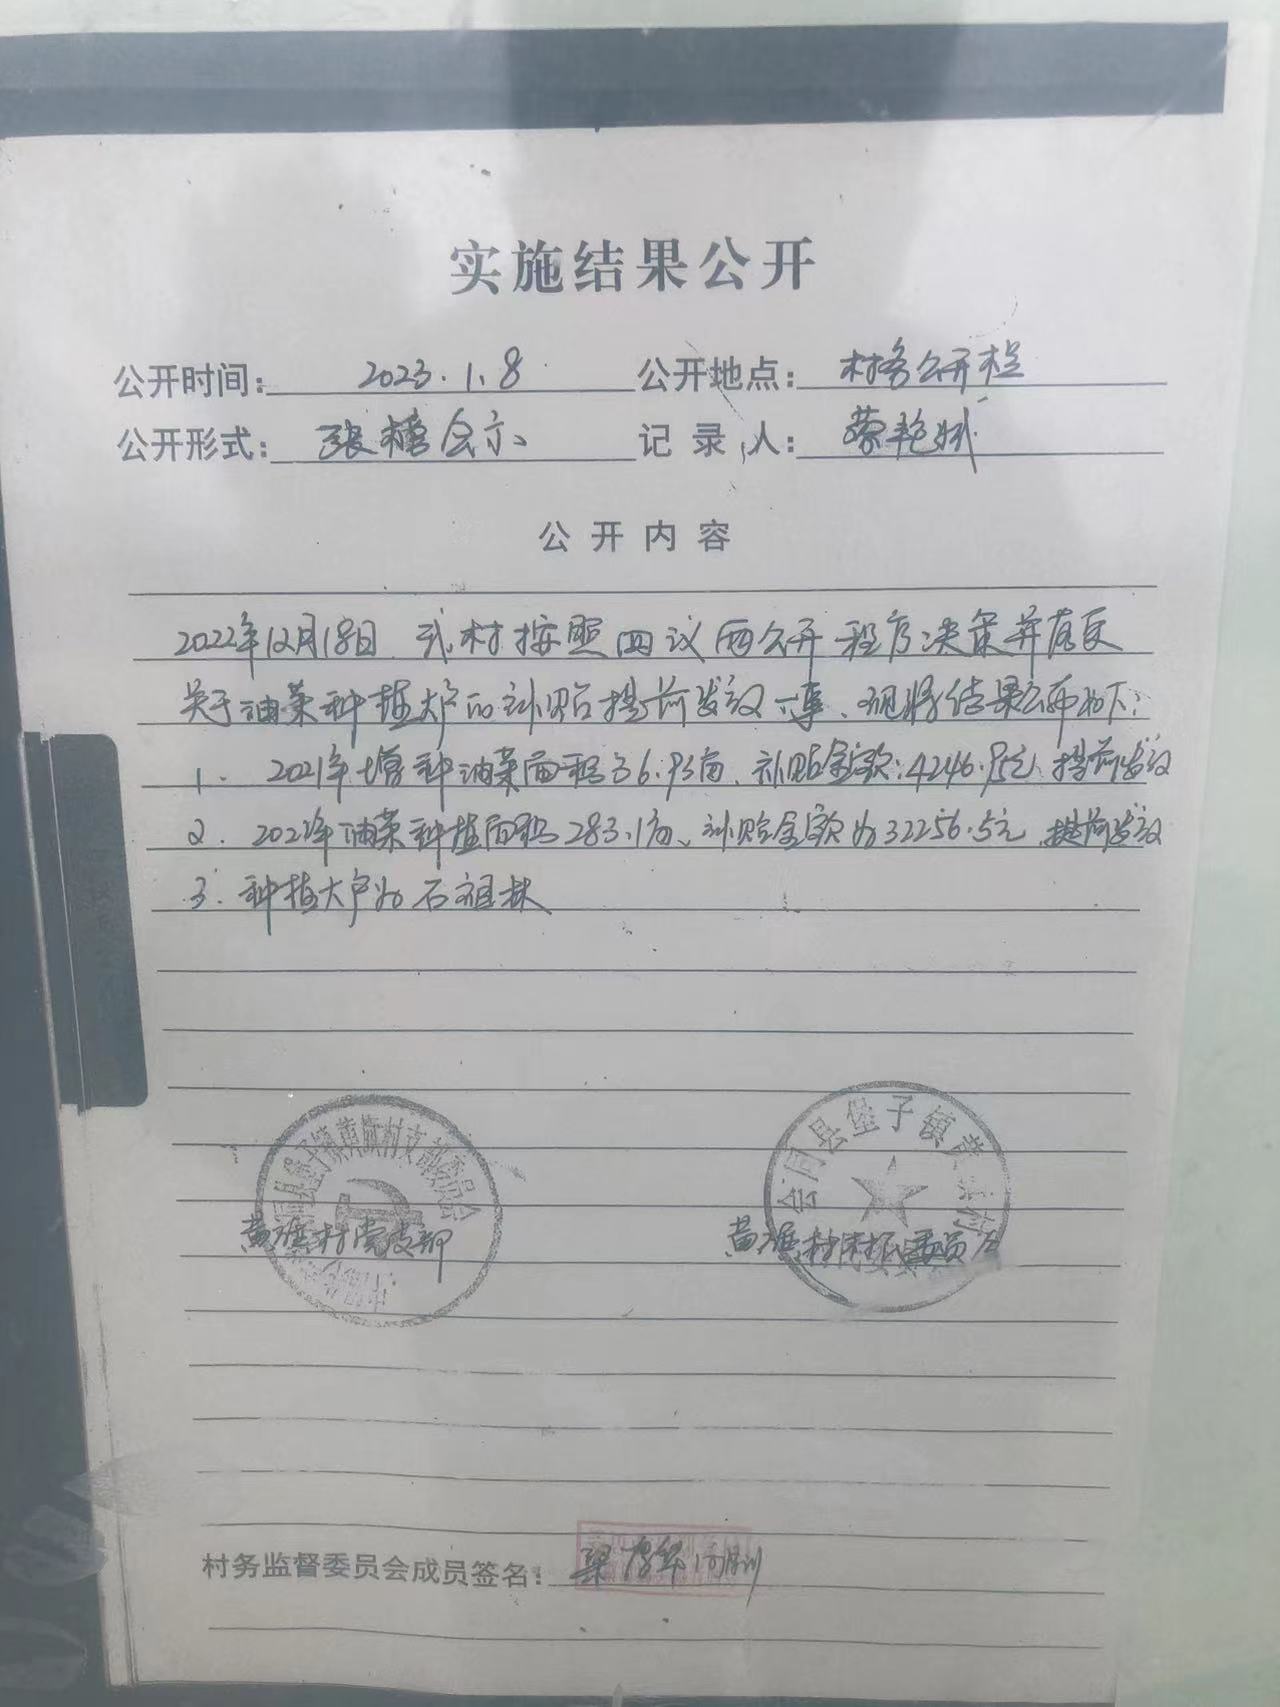 实施结果公开
公开时间: 2023.1.8 公开地点: 村务公开栏
公开形式: 张榜公示 记录人: 蔡艳斌
公开内容
2022年12月18日 我村按照四议两公开程序决策并落实
关于油菜种植大户的补贴提前发放一事、现将结果公布如下:
1. 2021年增种油菜面积36.93亩、补贴金额:4246.95元 提前发放
2. 2022年油菜种植面积283.1亩、补贴金额为32256.5元 提前发放
3. 种植大户为石祖林
堡子镇黄 村支部委员会
会同县堡子镇黄 村
村党支部
村村民委员会
村务监督委员会成员签名: